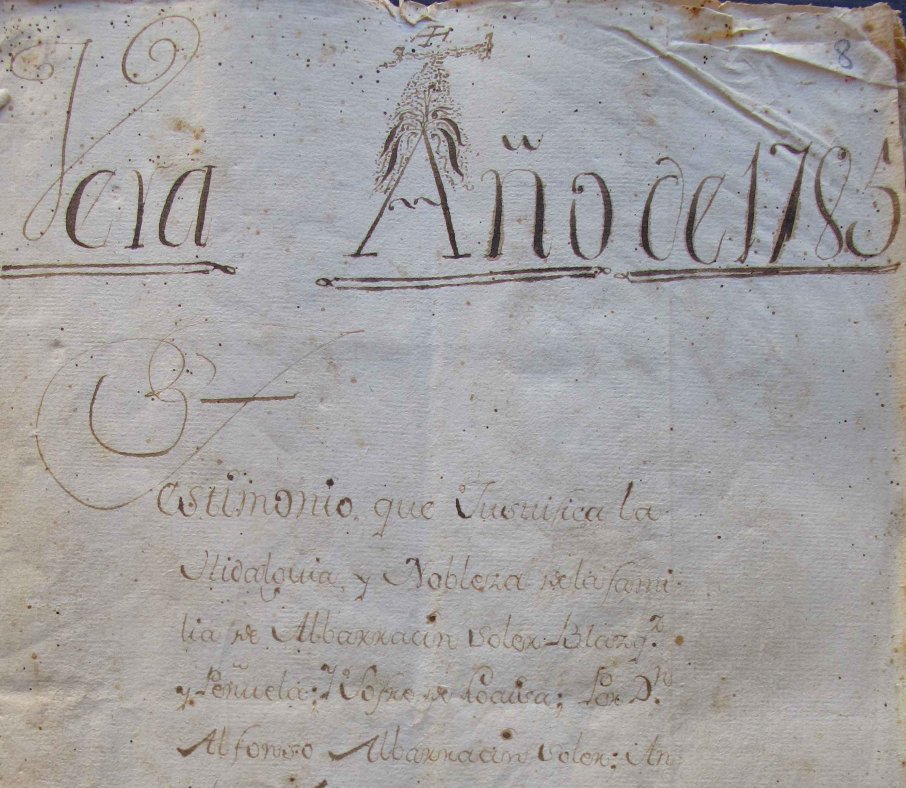 8
Vera Año de 1785
Testimonio, que Jusuifica la
Hidalguia, y Nobleza de la fami-
lia de Albarracin Soler: Blazq.z
y Peñuela: Por D.n
Alfonso Albarracin Soler: An